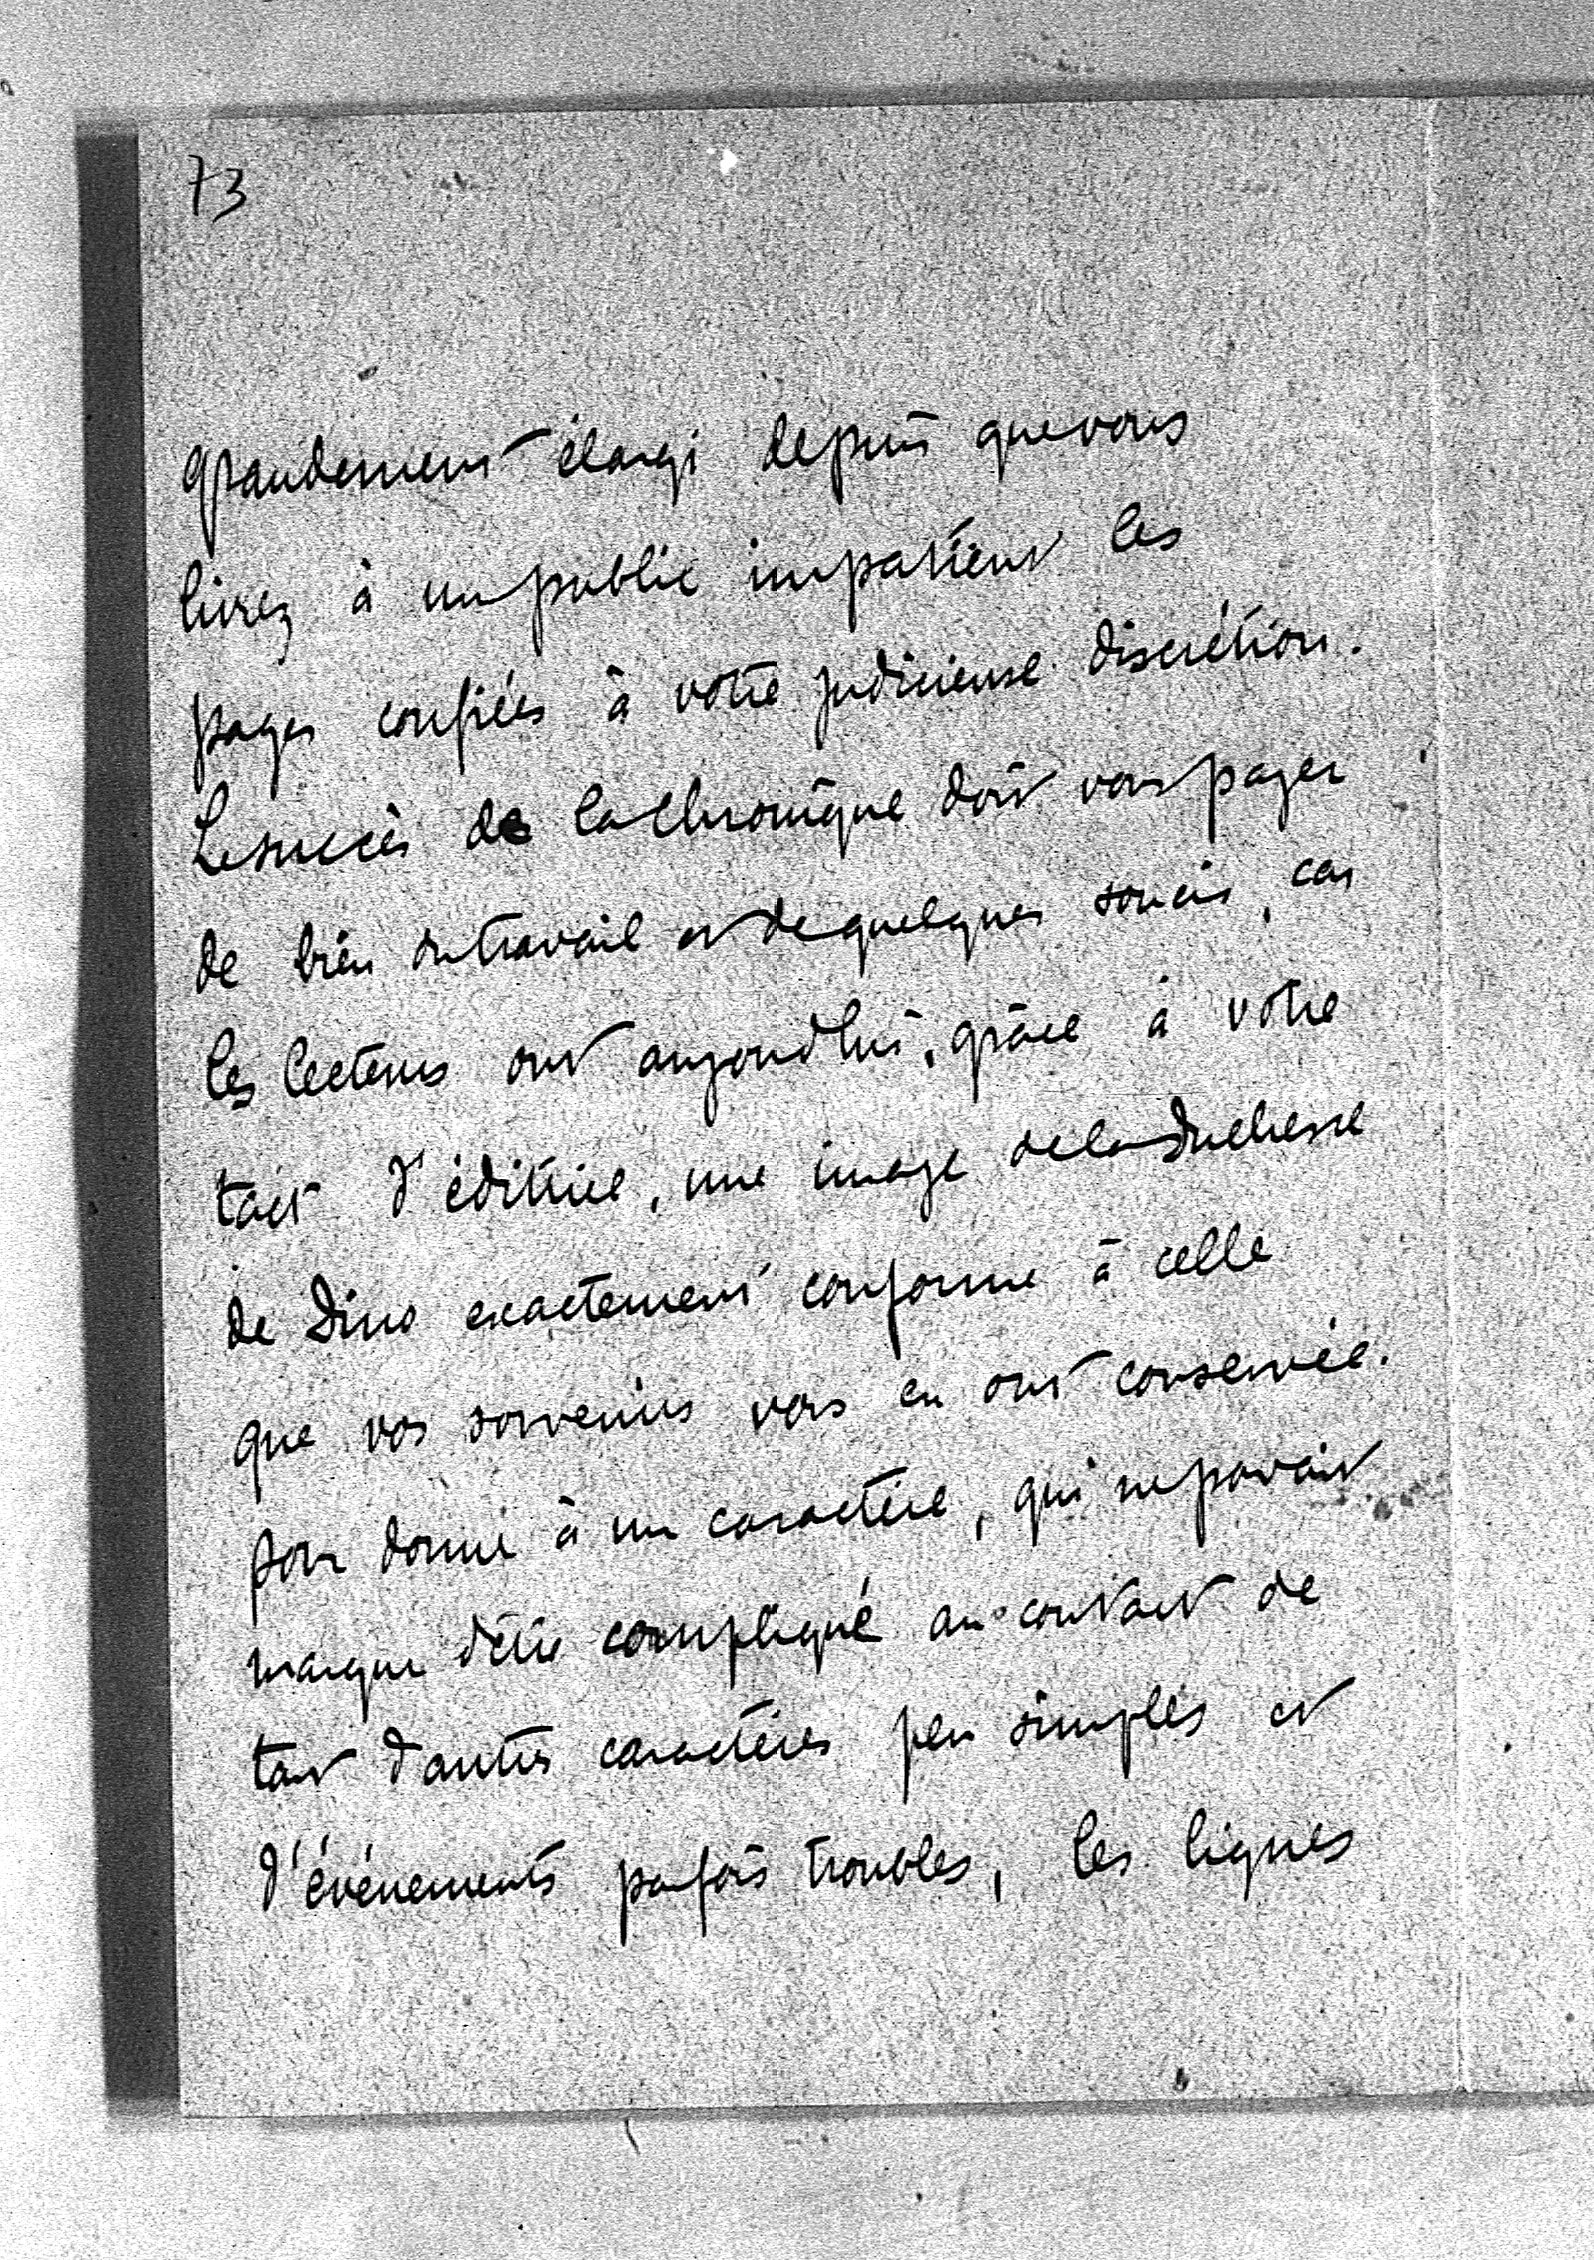 73
grandement élargi depuis que vous
livrez à un public impatient les
pages confiées à votre judicieuse discrétion.
Le succès de la Chronique doit vous payer
de bien du travail et de quelques soucis, car
les lecteurs ont aujourd'hui, grâce à votre
tact d'éditrice, une image de la Duchesse
de Dino exactement conforme à celle
que vos souvenirs vous en ont conservée.
pour donné à un caractère, qui ne pouvait
manquer d'être compliqué au contact de
tant d'autres caractères peu simples et
d'événements parfois troubles, les lignes